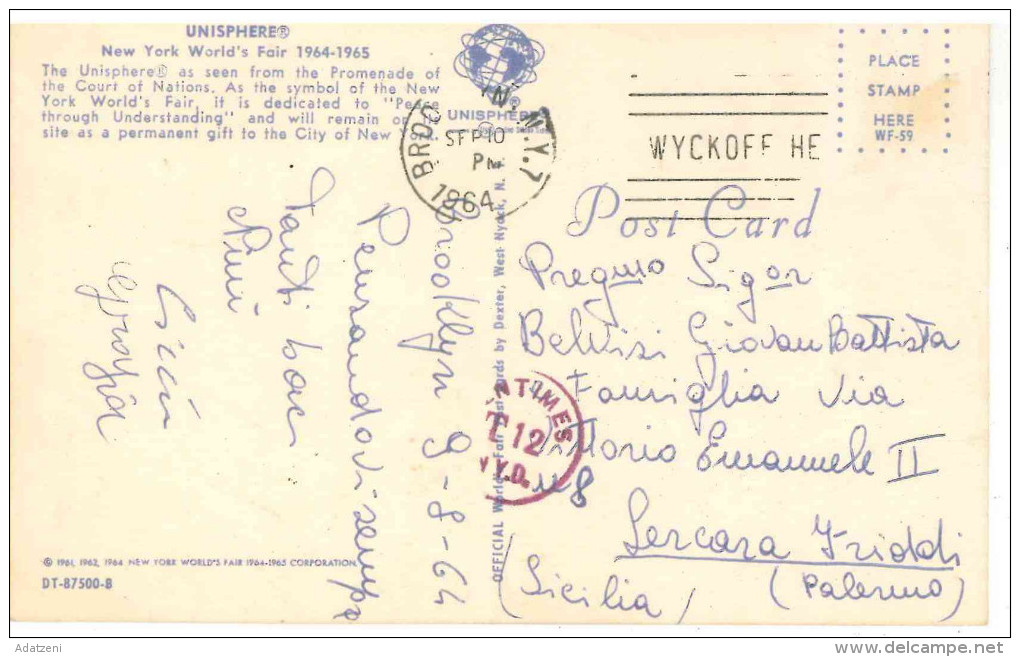 UNISPHERE®
New York World's Fair 1964-1965
The Unisphere® as seen from the Promenade of
the Court of Nations. As the symbol of the New
York World's Fair, it is dedicated to "Peace
through Understanding" and will remain on its
site as a permanent gift to the City of New York.
UNISPHERE®
BROOKLYN, N.Y. 7
SEP 10
PM
1964
WYCKOFF HE
PLACE
STAMP
HERE
WF-59
Post Card
Brooklyn 9-8-64
Pensandovi sempre
Tanti baci
Ninì
Pregmo Sigor
Belvisi Giovan Battista
Famiglia Via
Vittorio Emanuele II
n 8
Lercara Friddi
(Palermo)
(Sicilia)
CENTIMES
T 12
N.Y.D.
OFFICIAL World's Fair Post Cards by Dexter, West Nyack, N. Y.
© 1961, 1962, 1964 NEW YORK WORLD'S FAIR 1964-1965 CORPORATION
DT-87500-B
Adatzeni
www.delcampe.net